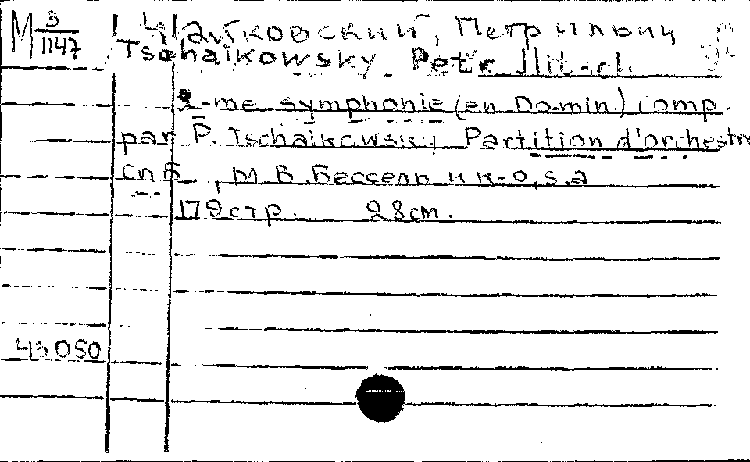 М 3/1147
Чайковский, Петр Ильич
Tschaikowsky Petr Ilitsch
2-me symphonie (en Do-min) comp.
par P. Tschaikowsky Partition d'orchestre
СПБ, М. В. Бессель и к-о, s.a
172 стр. 28 cm.
45050